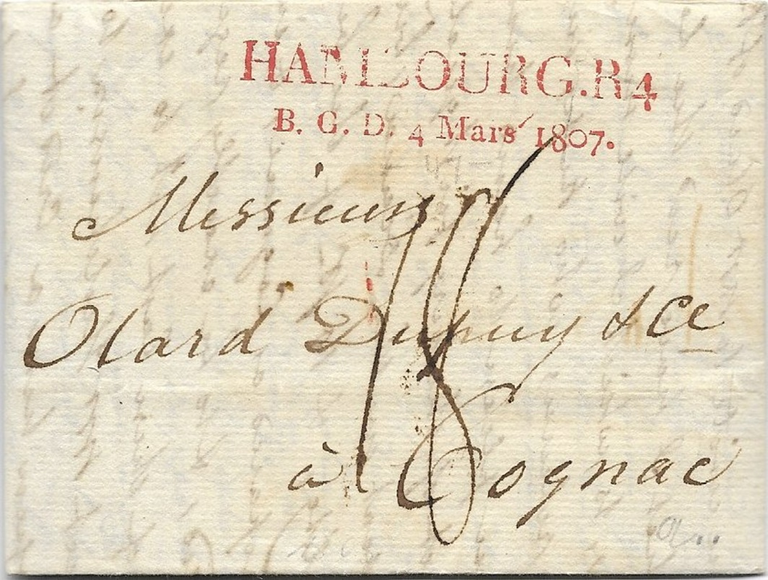 HAMBOURG.R4
B. G. D. 4 Mars 1807.
Messieurs
Otard Dupuy & Ce
18
à Cognac